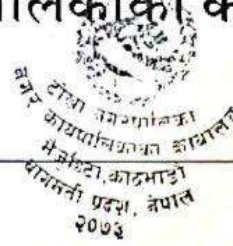 पालिकाको का
टोखा नगरपालिका
नगर कार्यपालिकाको कार्यालय
काठमाडौं
प्रदेश, नेपाल
२०७३